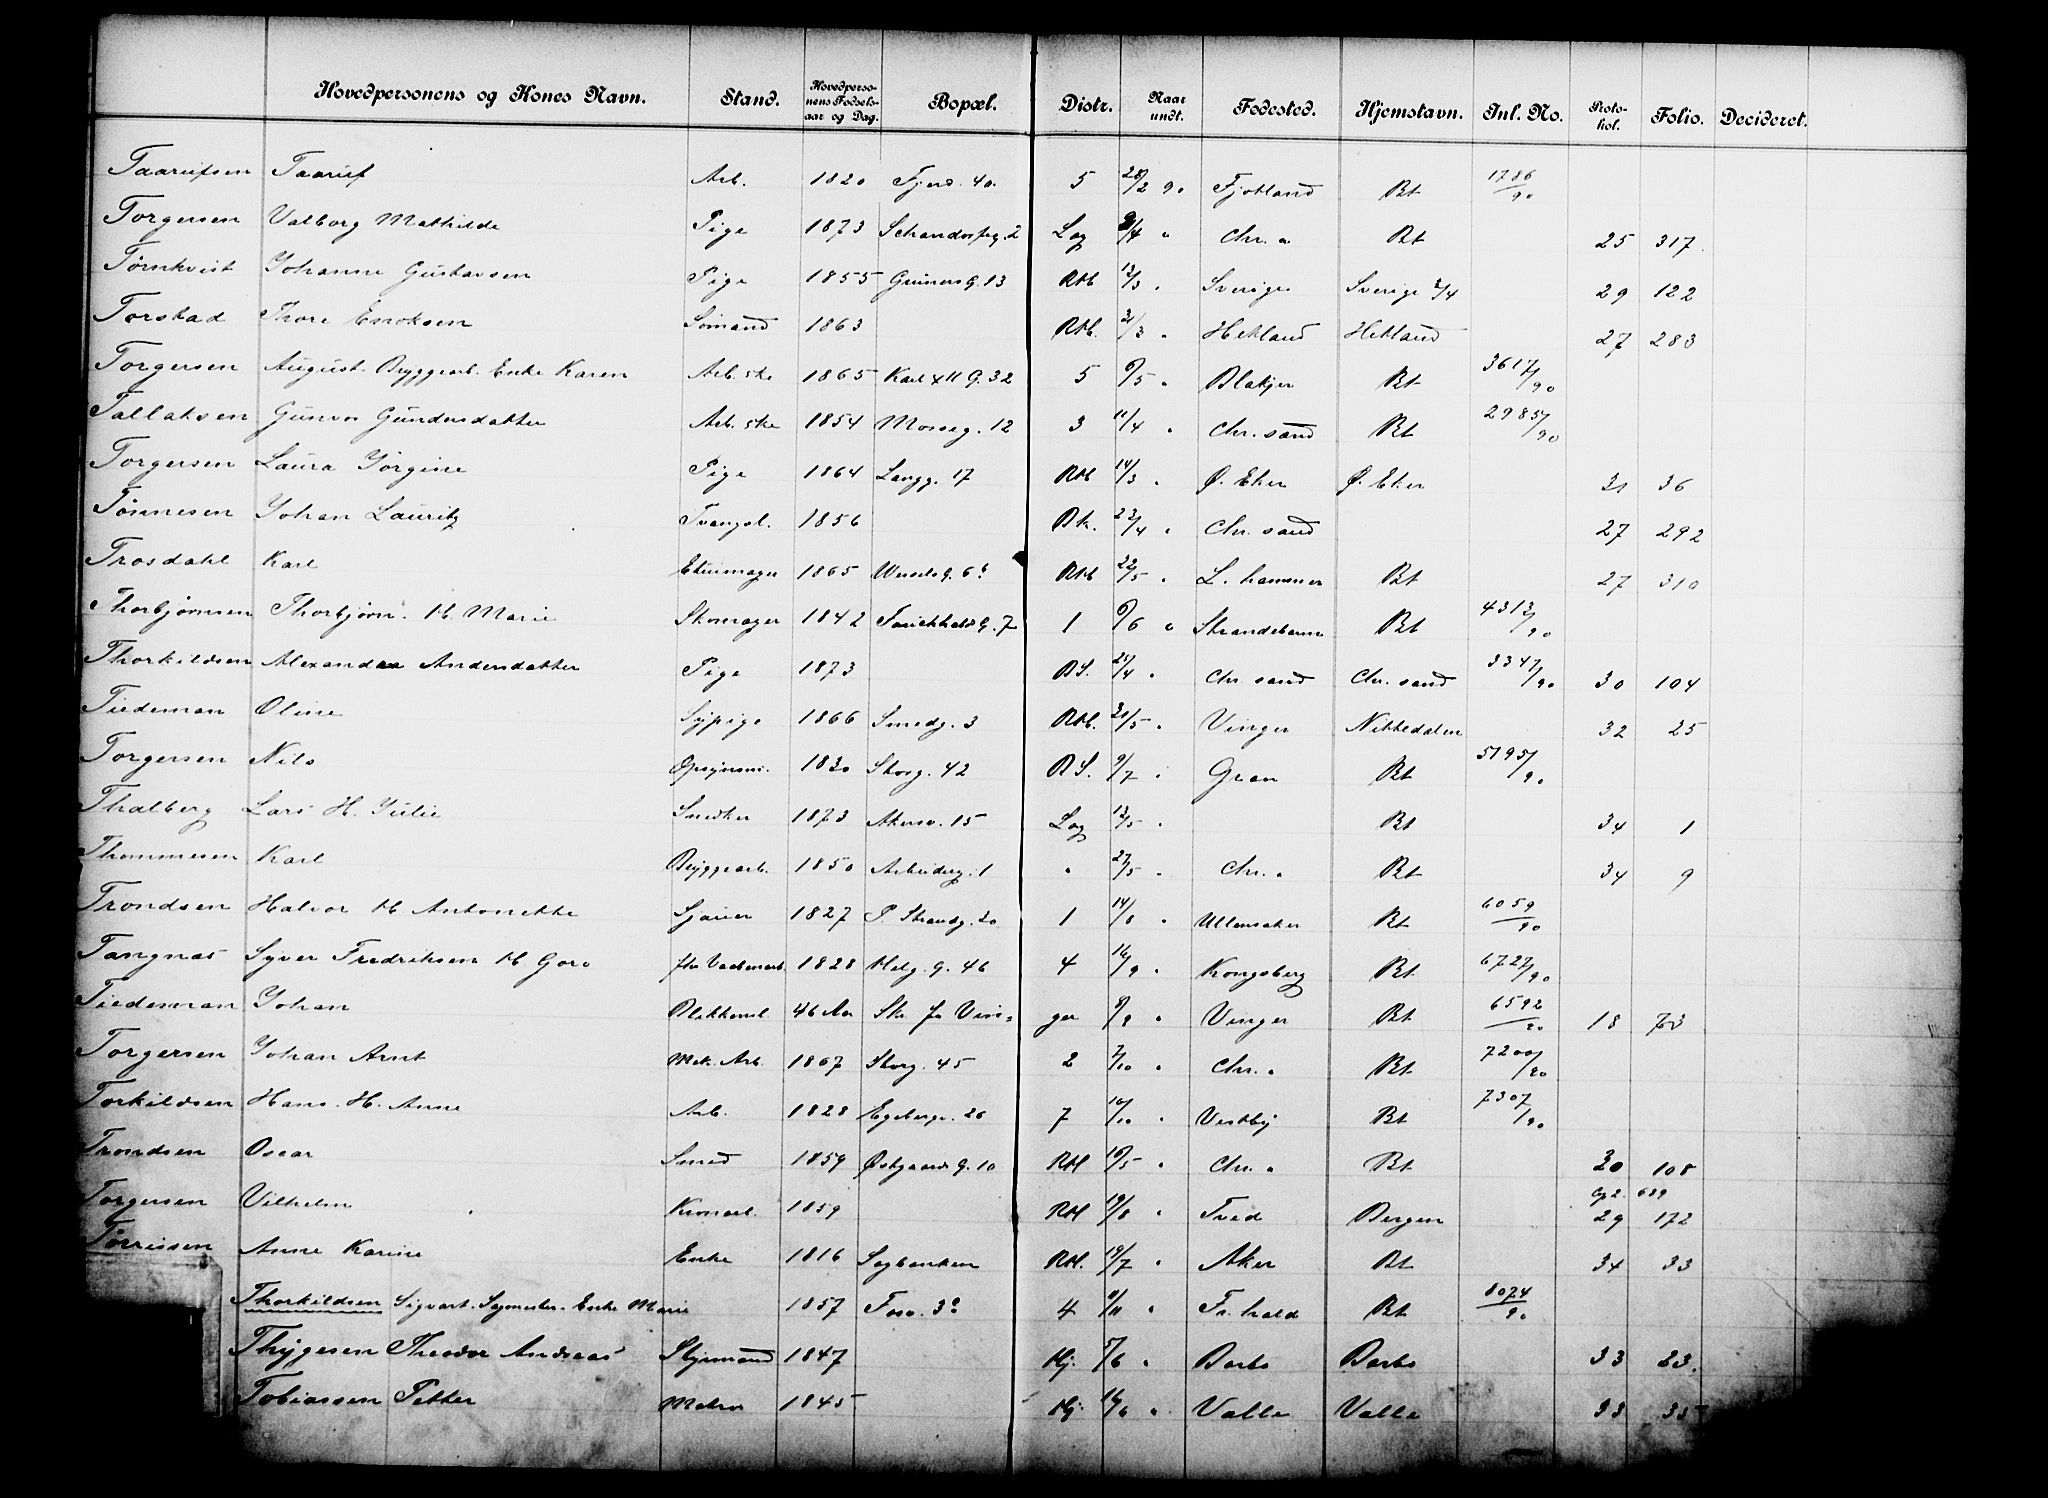 Hovedpersonens og Kones Navn. Stand. Hovedperso-nens Fødsels-aar og Dag. Bopæl. Distr. Naar undt. Fødested. Hjemstavn. Inl. No. Proto-kol. Folio. Decideret.
Taarufsen Taaruf Arb. 1820 Fjerd. 40. 5 28/2 90 Fjotland Bt 1786/90
Torgersen Valborg Mathilde Pige 1873 2 Log /4 " Chr. a Bt 25 317.
Törnkvist Johanne Gustavsen Pige 1855 Grünersg. 13 RH 13/3 " Sverige Sverige 29 122
Torstad Thore Enoksen Sömand 1863 RH. 31/3 " Hetland Hetland 27 283
Torgersen August. Bryggearb. Enke Karen Arb. ske 1865 Karl XII G. 32 5 6/5 " Blakjer Bt 3617/90
Tallaksen Gunvor Gundersdatter Arb. ske 1854 Mosseg. 12 3 11/4 " Chr. sand Bt 2985/90
Torgersen Laura Jörgine Pige 1864 Langg. 17 RH 14/3 " Ø. Eker Ø. Eker 31 36
Tönnesen Johan Lauritz Tvangsl. 1856 Bk. 23/4 " Chr. sand 27 292
Trosdahl Karl Etuimager 1865 Wesselsg. 6b RH 22/5 " L. hammer Bt 27 310
Thorbjörnsen Thorbjörn. H. Marie Skomager 1842 G. 7 1 6/6 " Strandebarm Bt 4313/90
Thorkildsen Alexandra Andersdatter Pige 1873 BS. 25/4 " Chr. sand Chr. sand 3347/90 30 104
Tiedeman Oline Sypige 1866 Smedg. 3 RH. 31/5 " Vinger Nittedalen 32 25
Torgersen Nils Opsynsm. 1830 Storg. 42 BS. 9/7 " Gran Bt 5195/90
Thalberg Lars H. Julie Snedker 1873 Akersv. 15 Log 13/5 " Bt 34 1
Thommesen Karl Bryggearb. 1850 Arbeiderg. 1 " 27/5 " Chr. a Bt 34 9
Trondsen Halvor H Antonette Sjauer 1827 P. Strandg. 20 1 14/8 " Ullensaker Bt 6059/90
Tangnæs Syver Fredriksen H. Goro 1828 Helg. G. 46 4 16/9 " Kongsberg Bt 6727/90
Tiedeman Johan Blikkensl 46 Aar Skr. fra Vin=ger 8/9 " Vinger Bt 6592/90 18 73
Torgersen Johan Arnt Mek. Arb. 1867 Storg. 45 2 7/10 " Chr. a Bt 7200/90
Torkildsen Hans. H. Anne Arb. 1828 Egebergs. 26 7 10/10 " Vestby Bt 7307/90
Trondsen Oscar Smed 1859 Østgaards G. 10 RH 10/5 " Chr. a Bt 30 108
Torgersen Vilhelm 1859 RH 19/8 " Tved Bergen 689 29 172
Törrissen Anne Karine Enke 1816 Sagbanken RH. 19/7 " Aker Bt 34 33
Thorkildsen Sigvart. Sagmester. Enke Marie 1857 Fosv. 3 4 8/11 " Fr. hald Bt 8074/90
Thygesen Theodor Andreas Styrmand 1847 Hj. 5/6 " Barbo Barbo 33 23.
Tobiassen Petter Matros 1845 Hj 16/6 " Valle Valle 33 35